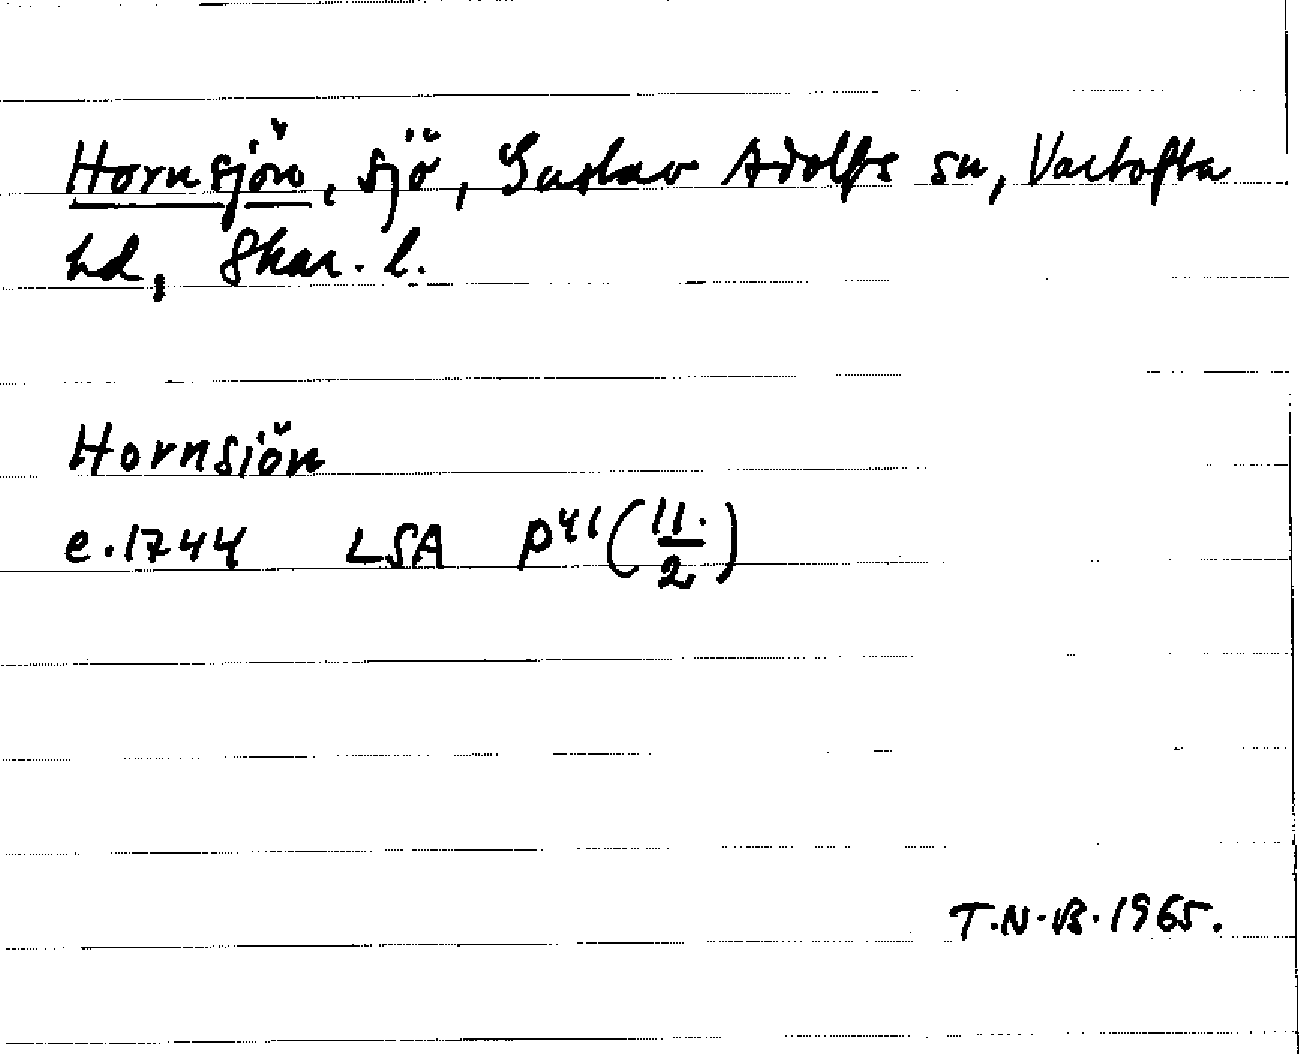 Hornsjön, sjö, Gustav Adolfs sn, Vartofta
hd, Skar. l.
Hornsiön
e. 1744 LSA P41 (11./2)
T.N.B. 1965.